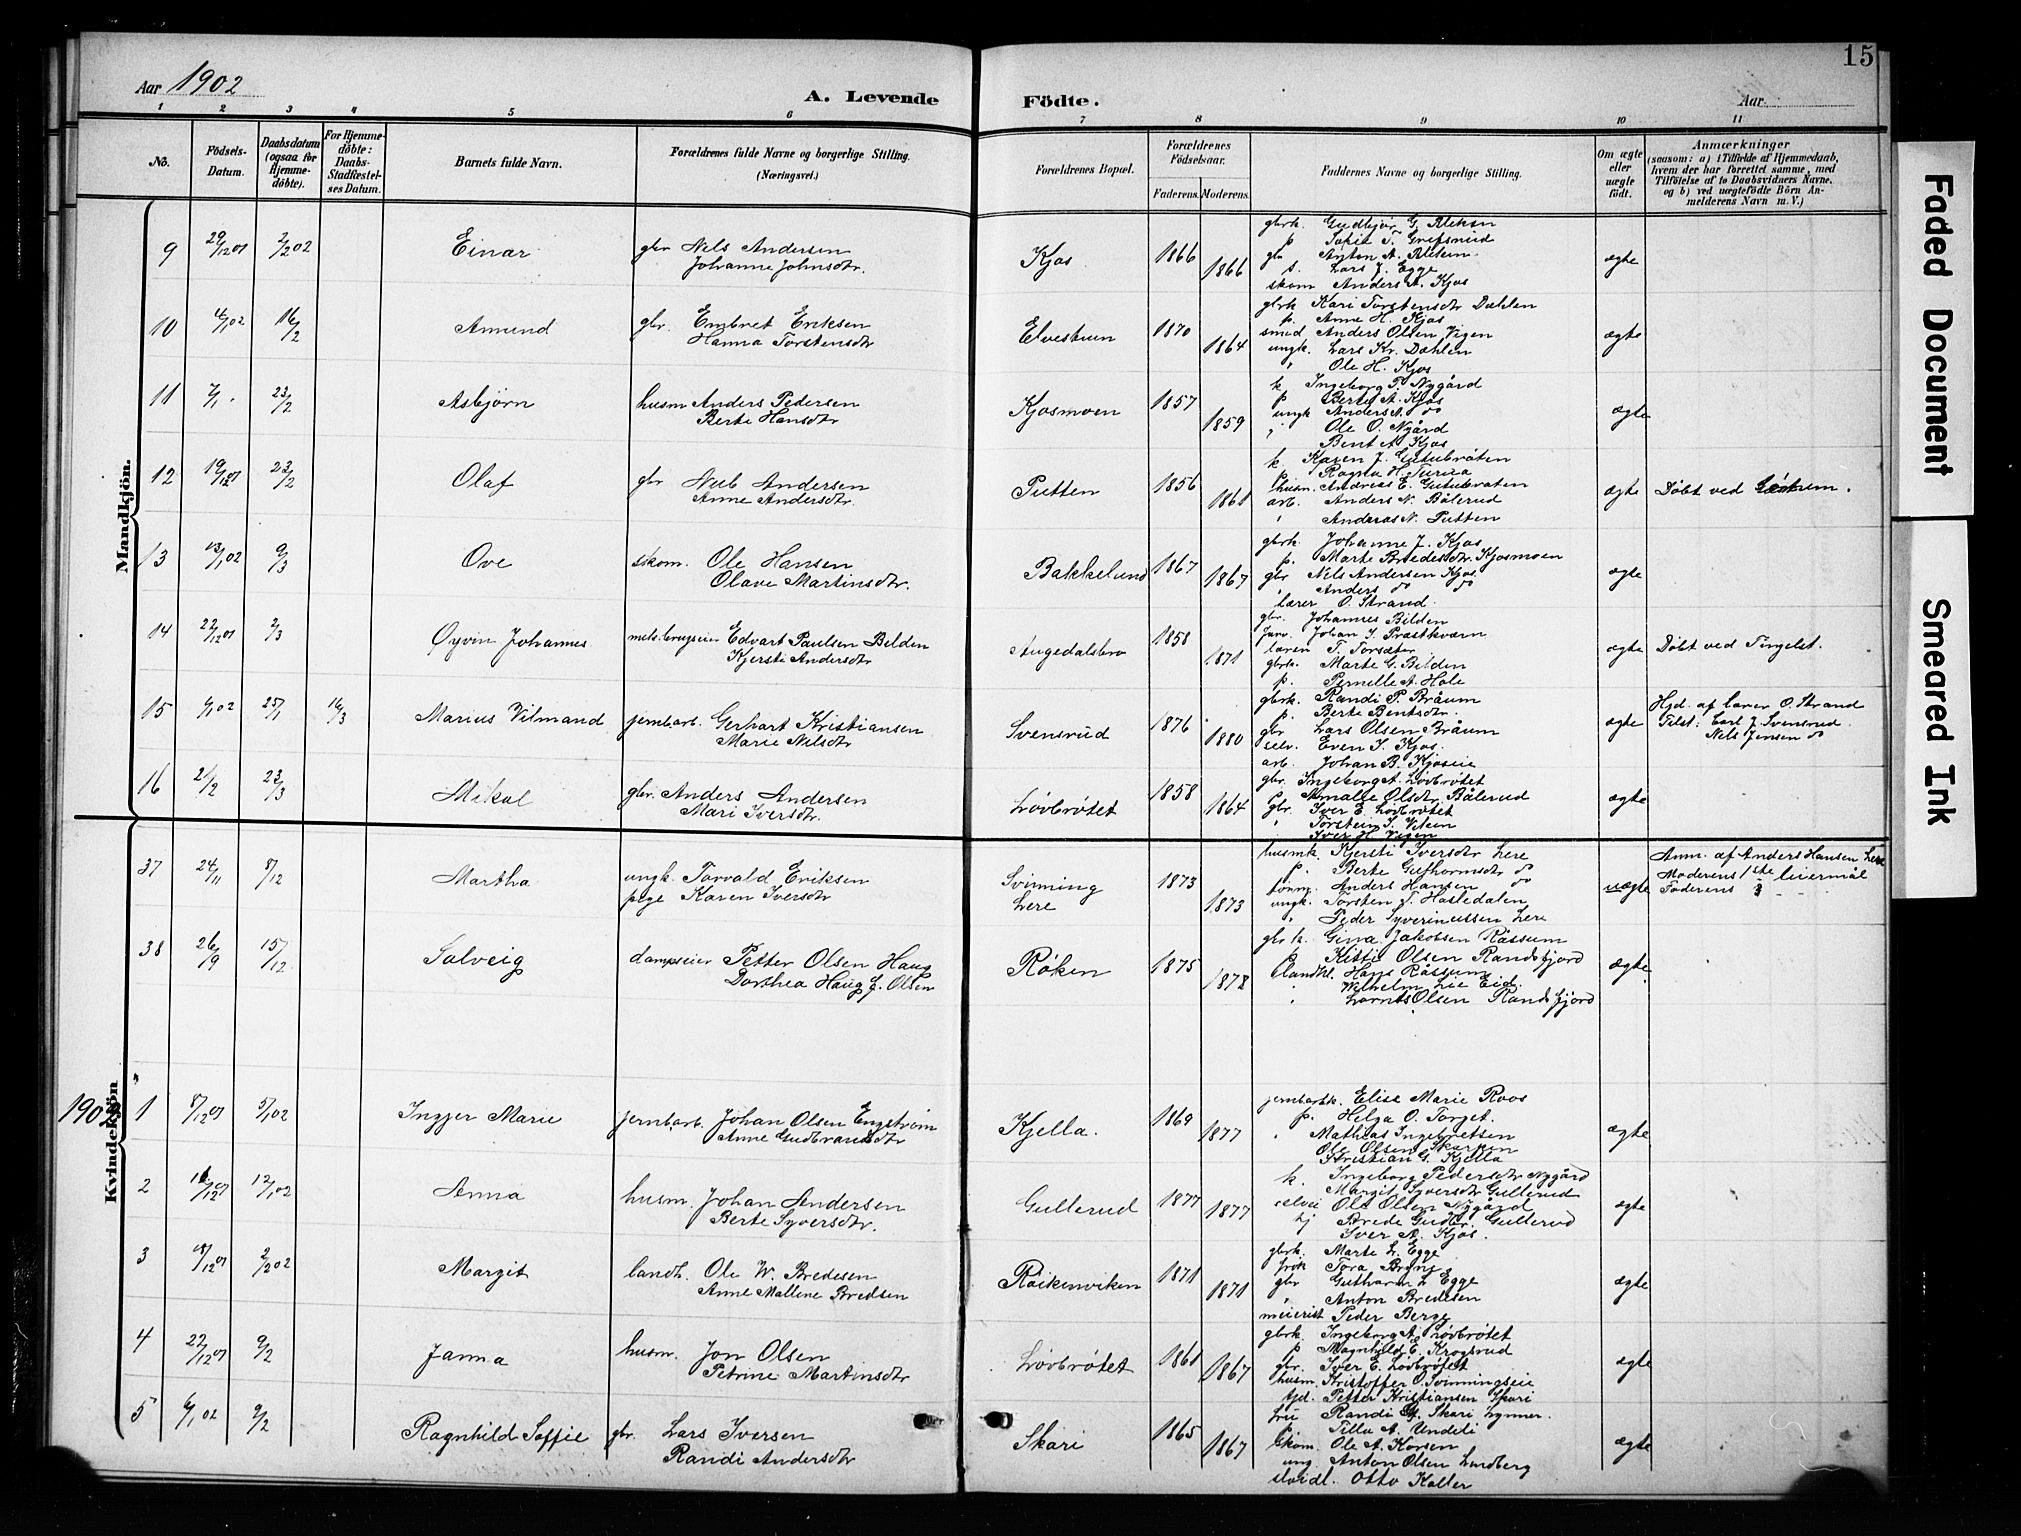 15
Aar 1902
A. Levende Födte.
Aar
1 2 3 4 5 6 7 8 9 10 11
No.
Födsels-Datum.
Daabsdatum (ogsaa for Hjemme-döbte).
For Hjemme-döbte: Daabs-Stadfæstelses Datum.
Barnets fulde Navn.
Forældrenes fulde Navne og borgerlige Stilling. (Næringsvei.)
Forældrenes Bopæl.
Forældrenes Födselsaar.
Faderens. Moderens.
Faddernes Navne og borgerlige Stilling.
Om ægte eller uægte födt.
Anmærkninger
(saasom: a) i Tilfælde af Hjemmedaab,
hvem der har forrettet samme, med
Tilföielse af to Daabsvidners Navne,
og b) ved uægtefödte Börn An-
melderens Navn m. V.)
Mandkjön.
9 29/12 01 2/2 02 Einar gbr Nils Andersen
Johanne Johnsdtr.
Kjos 1866 1866
gbrk. Gudbjør G. Bleken
p Sofie T. Grefsrud
gbr Anton A. Bleken
s. Lars J. Egge
skom Anders A. Kjos
ægte
10 4/1 02 16/2 Amund gbr. Embret Eriksen
Hanna Torstensdtr
Elvestuen 1870 1864
gbrk Kari Torstensdtr Dæhlen
p. Anne H. Kjos
smed Anders Olsen Vigen
ungk. Lars Kr. Dæhlen
" Ole H. Kjos
ægte
11 7/1 23/2 Asbjørn husm Anders Pedersen
Berte Hansdtr
Kjosmoen 1857 1859
k Ingeborg P. Nygård
p Berte A. Kjos
ungk Anders A. do
" Ole O. Nygård
Bent A. Kjos
ægte
12 19/12 01 23/2 Olaf gbr Nils Andersen
Anne Andersdtr.
Putten 1856 1861
k Karen J. Gutubråten
p Ragna H.
husm. Andreas E. Gutubråten
arb. Anders N. Bålerud
" Andreas N. Putten
ægte Døbt ved
13 13/1 02 9/3 Ove skom. Ole Hansen
Olave Martinsdtr.
Bakkelund 1867 1867
gbrk. Johanne J. Kjos
p. Marte Bredesdtr. Kjosmoen
gbr Nils Andersen Kjos
" Anders do do
lærer O. Strand.
ægte
14 22/12 01 2/3 Øyvin Johannes Edvart Paulsen Bilden
Kjersti Andersdtr
Augedalsbro 1858 1871
gbr. Johannes Bilden
Johan J. Præstkværn
læreri T. Torsæter
gbrk. Marte G. Bilden
p. Pernille A. Hole
ægte Døbt ved Tingelst.
15 6/1 02 25/1 16/3 Marius Vilmand jernbarb. Gerhart Kristiansen
Marie Nilsdtr
Svensrud 1876 1880
gbrk. Randi P. Bråum
p. Berte Bentsdtr.
gbr Lars Olsen Bråum
selv. Even I. Kjos.
arb. Johan B. Kjoseie
ægte
Hjd. af lærer O. Strand
Tilst: Carl J. Svensrud.
Nils Jensen do
16 21/2 23/3 Mikal gbr. Anders Andersen
Mari Iversdtr.
Løvbrøtet 1858 1864
gbr. Ingeborg A. Løvbrøtet
Amalie Olsdtr Bålerud
gbr. Iver E. Løvbrøtet
" Torstein I. Velein
Iver H. Vigen
ægte
37 24/11 8/12 Martha ungk. Torvald Eriksen
pige Karen Iversdtr
Svinning
Lere
1873 1873
husmk. Kjersti Iversdtr Lere
p. Berte Guthormsdtr do
tømm. Anders Hansen do
ungk. Torsten T. Hasledalen
" Peder Syverinussen Lere
uægte
Anm. af Anders Hansen Lere
Moderens 1ste leiermål
Faderens 3 "
38 26/9 15/12 Solveig dampseier Petter Olsen Haug
Dorthea Haug f. Olsen
Røken 1875 1872
gbrk. Gina Jakobsen Råssum
p Kitti Olsen Randsfjord
landhl. Hans Råssum
" Wilhelm Lie Eid.
" Lornts Olsen Randsfjord
ægte
1902
Kvindekjön
1 8/12 01 5/1 02 Ingjer Marie jernbarb. Johan Olsen Engstrøm
Anne Gudbrandsdtr
Kjella. 1869 1877
jernbarbk. Elise Marie Roos
p. Helga O. Torget.
" Mathias Ingebretsen
Ole Olsen Skarpen
Kristian G. Kjella
ægte
2 12/1 02 Anna husm. Johan Andersen
Berte Syversdtr.
Gullerud 1877 1877
k. Ingeborg Pedersdtr Nygård
Margit Syversdtr Gullerud
selvei Ole Olsen Nygård
hj Brede Gudbr. Gullerud
Iver A. Kjos.
ægte
3 18/12 01 2/2 02 Margit landh. Ole W. Bredesen
Anne Mallene Bredsen
Røikenviken 1871 1871
gbrk. Marte L. Egge
frøk Tora Bring
gbr Guthorm L Egge
" Anton Bredesen
meierist Peder Berge
ægte
4 27/12 01 9/2 Janna husm. Jon Olsen
Petrine Martinsdtr
Løvbrøtet 1861 1867
gbrk. Ingeborg A. Løvbrøtet
p Magnhild E. Krogsrud
gbr. Iver E. Løvbrøtet
husm. Kristoffer O. Svinningseie
tjd. Petter Kristiansen Skari
ægte
5 6/1 02 9/2 Ragnhild Soffie gbr. Lars Iversen
Randi Andersdtr
Skari 1865 1867
fru Randi G. Skari Lynner.
p Tilla A. Undeli
skom. Ole A. Korsen
ung. Anton Olsen Lundberg
Otto Koller
ægte
Faded Document
Smeared Ink